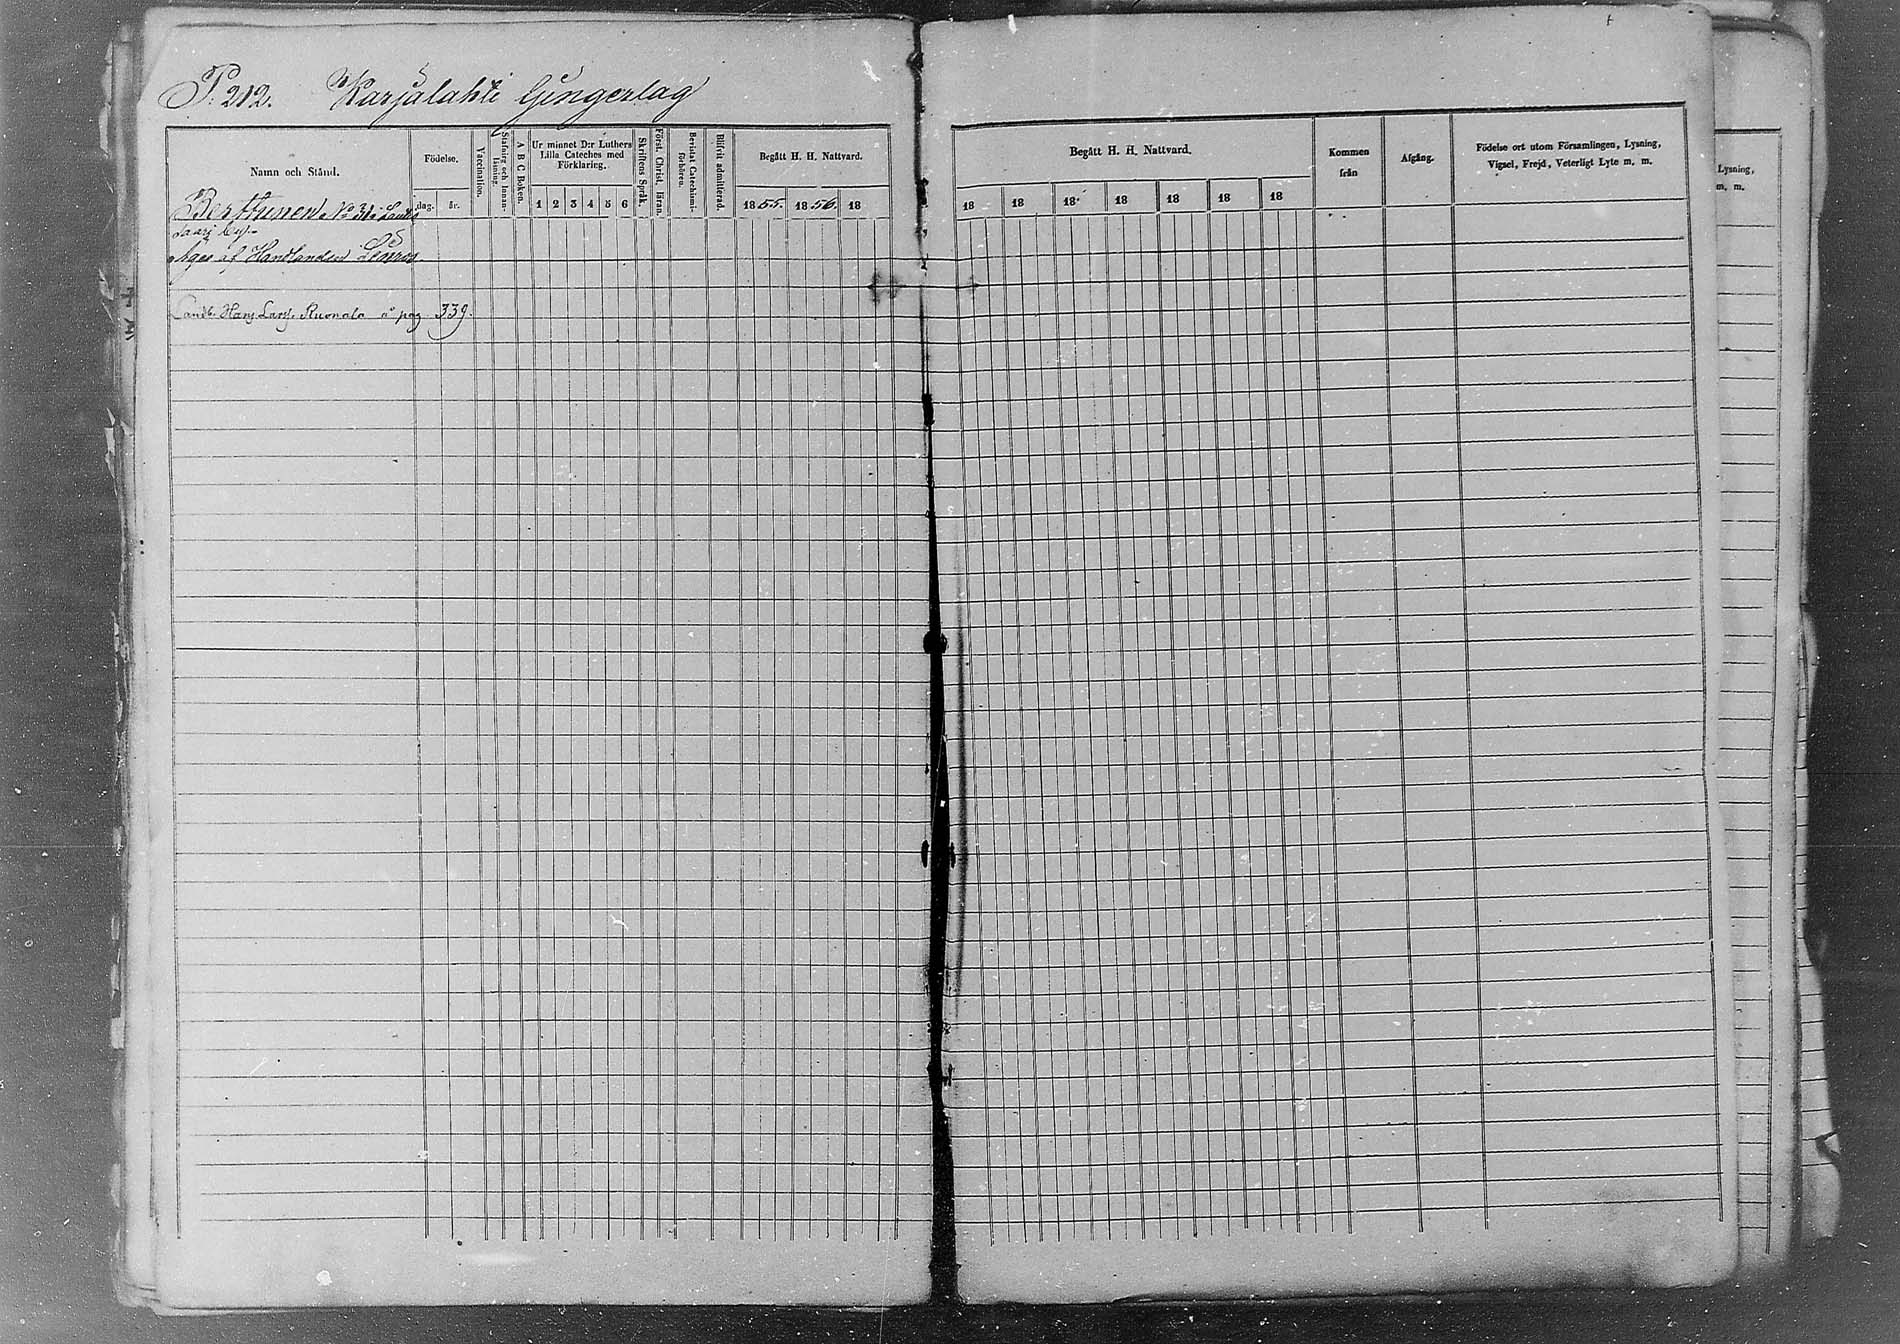 P. 212. Karjalahti Gingerlag
Namn och Stånd.
Födelse.
dag. år.
Vaccination.
Stafning och Innan-läsning.
A B C Boken.
Ur minnet D:r Luthers Lilla Cateches med Förklaring.
1 2 3 4 5 6
Skriftens Språk.
Först. Christ. läran.
Bevistat Catechismi-förhören.
Blifvit admitterad.
Begått H. H. Nattvard.
1855. 1856. 18
Berttunen No 31
Äges af Handlanden
Landb. Hans Larss. Ruonala å pag 339.
Begått H. H. Nattvard.
18 18 18 18 18 18 18
Kommen från
Afgång.
Födelse ort utom Församlingen, Lysning,
Vigsel, Frejd, Veterligt Lyte m. m.
Lysning,
m. m.